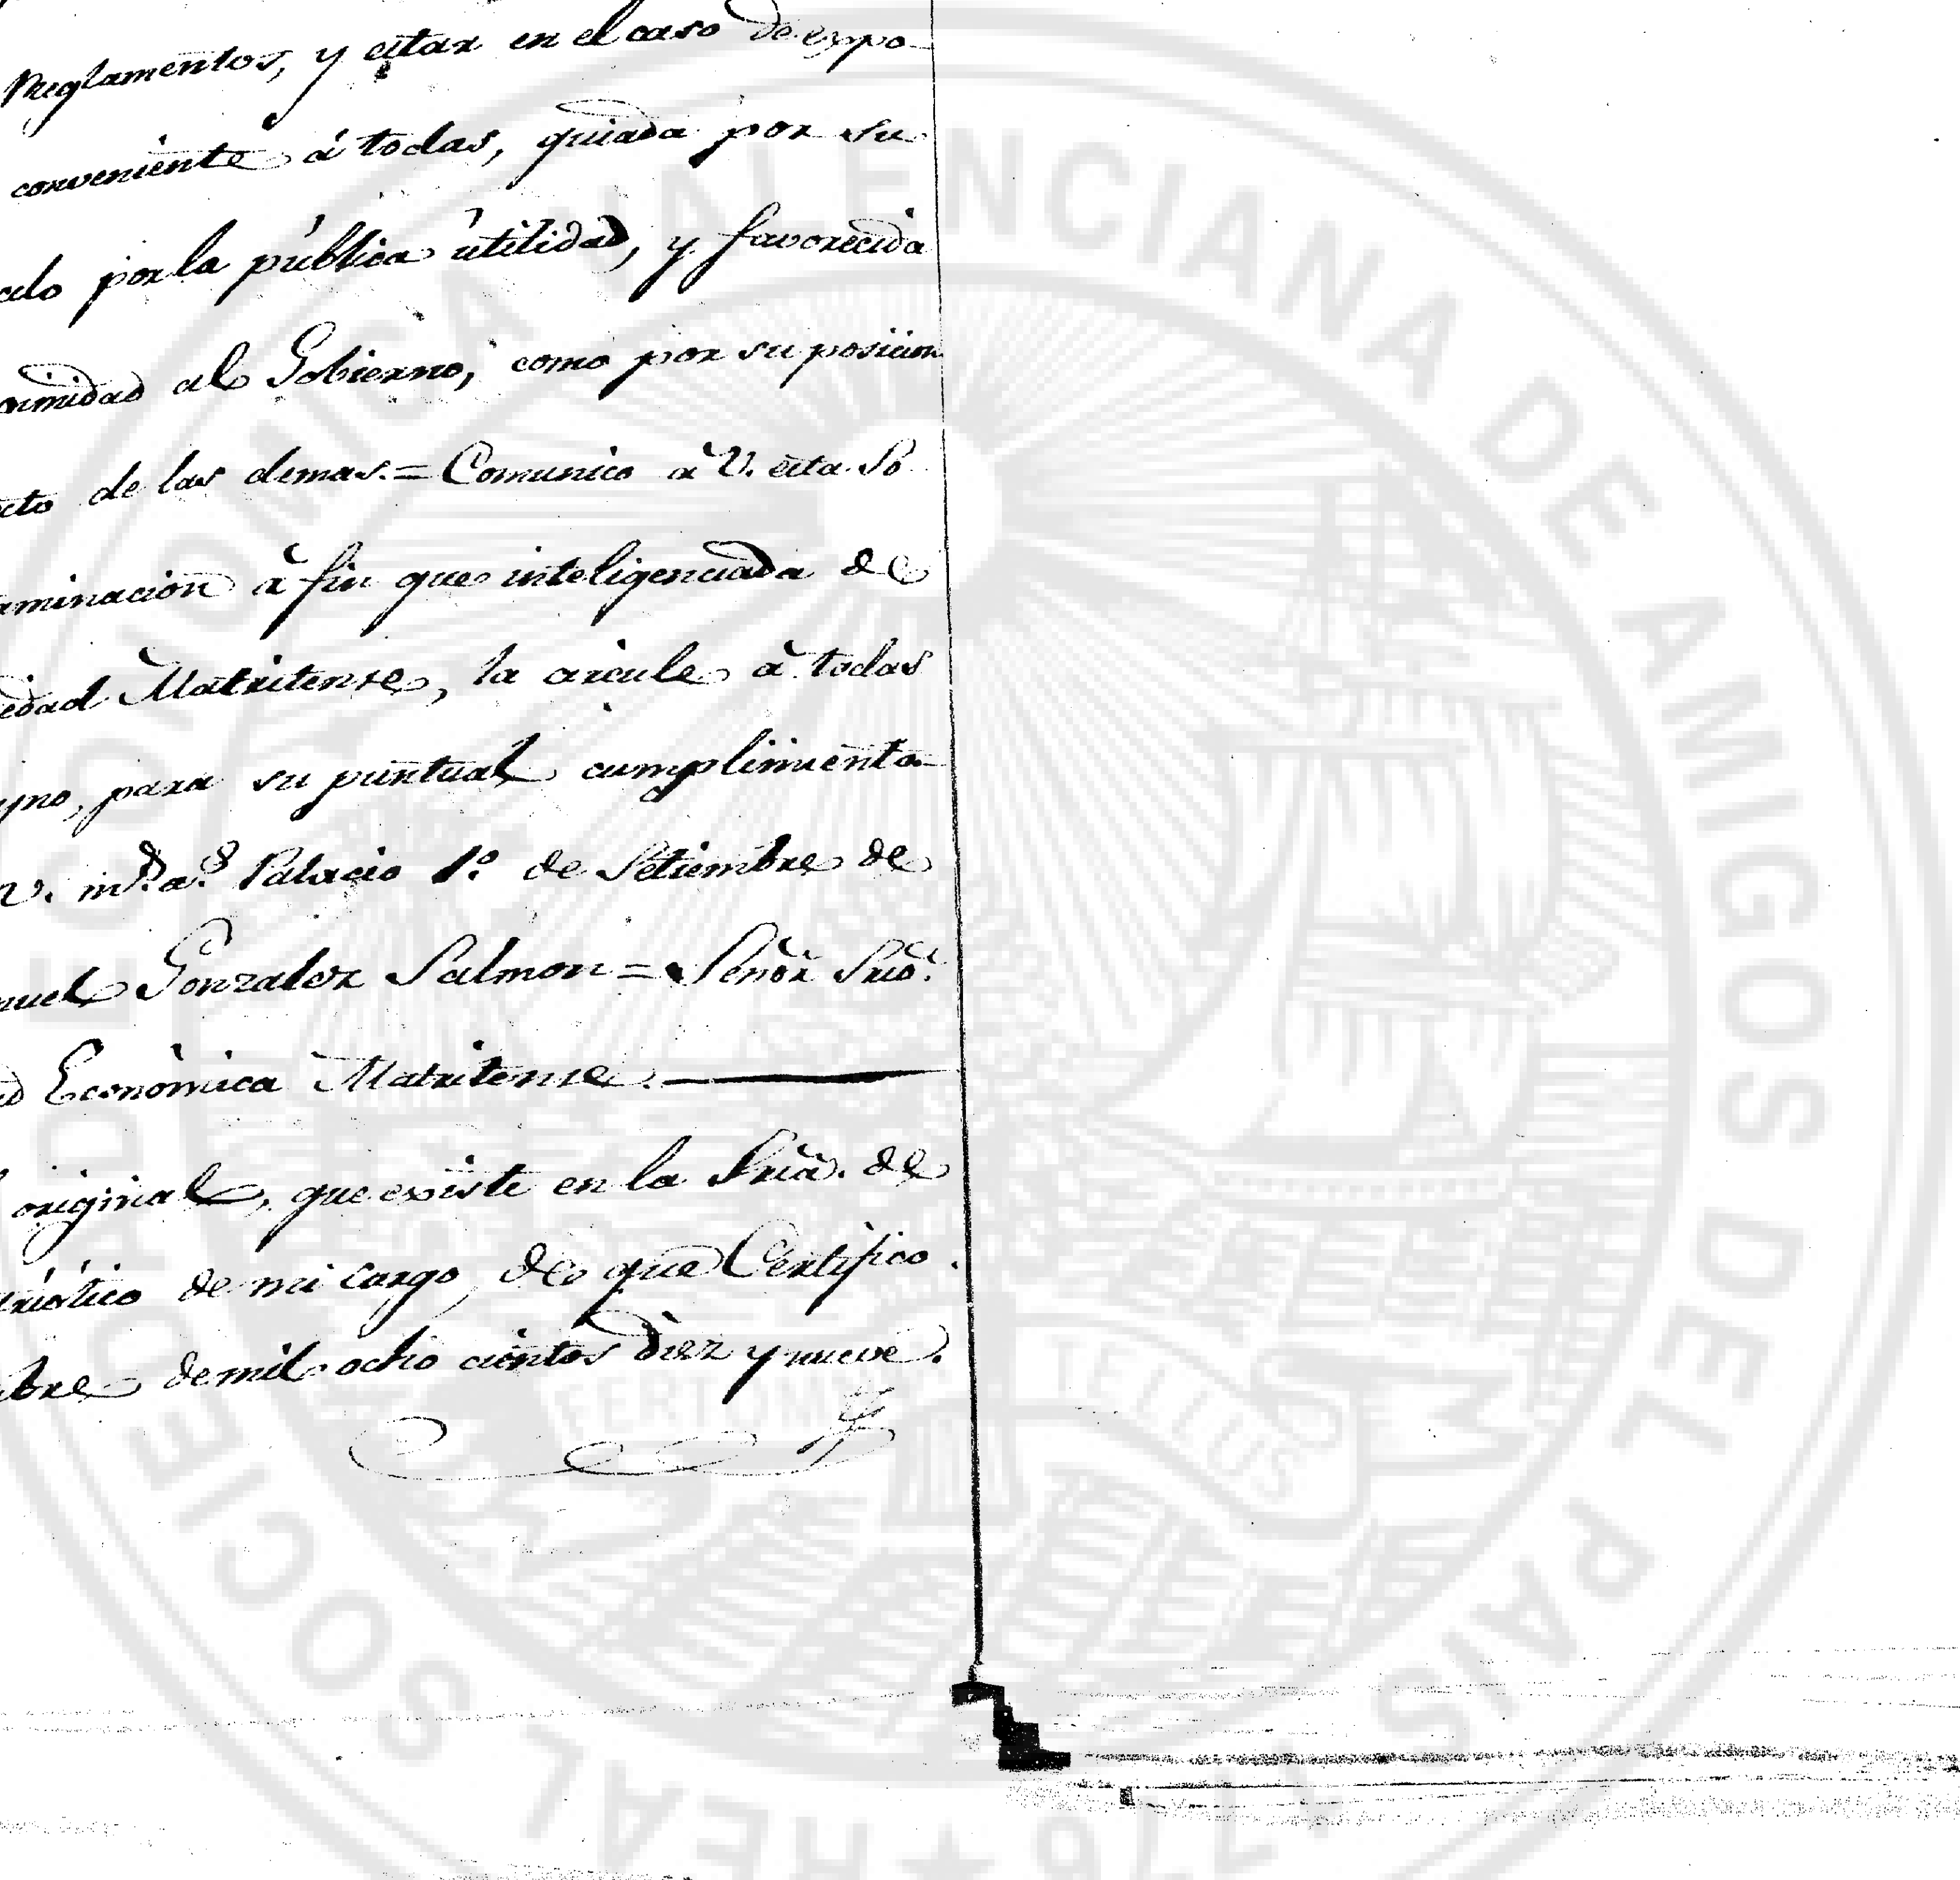 Reglamentos, y estar en el caso de expo-
conveniente à todas, guiada por su
celo por la pública utilidad, y favorecida
oximidad al Gobierno, como por su posicion
ecto de las demas. = Comunico à V. esta So-
rminacion à fin que inteligenciada de
iedad Matritense, la circule à todas
yno, para su puntual cumplimento
V. m.s a.s Palacio 1.º de Setiembre de
nuel Gonzalez Salmon = Señor Srio.
d Económica Matritense.
original, que existe en la Sria. de
triótico de mi cargo, de que Certifico.
bre de mil ocho cientos diez y nueve.
REAL SOCIEDAD ECONOMICA VALENCIANA DE AMIGOS DEL PAIS 1776